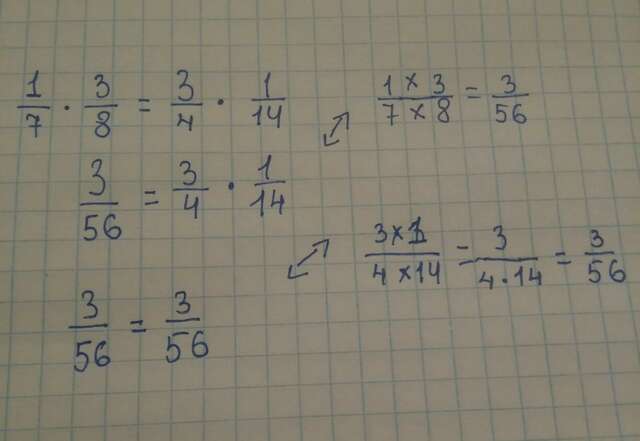 1/7 · 3/8 = 3/4 · 1/14
1 × 3 / 7 × 8 = 3/56
3/56 = 3/4 · 1/14
3×1 / 4×14 - 3 / 4·14 = 3/56
3/56 = 3/56